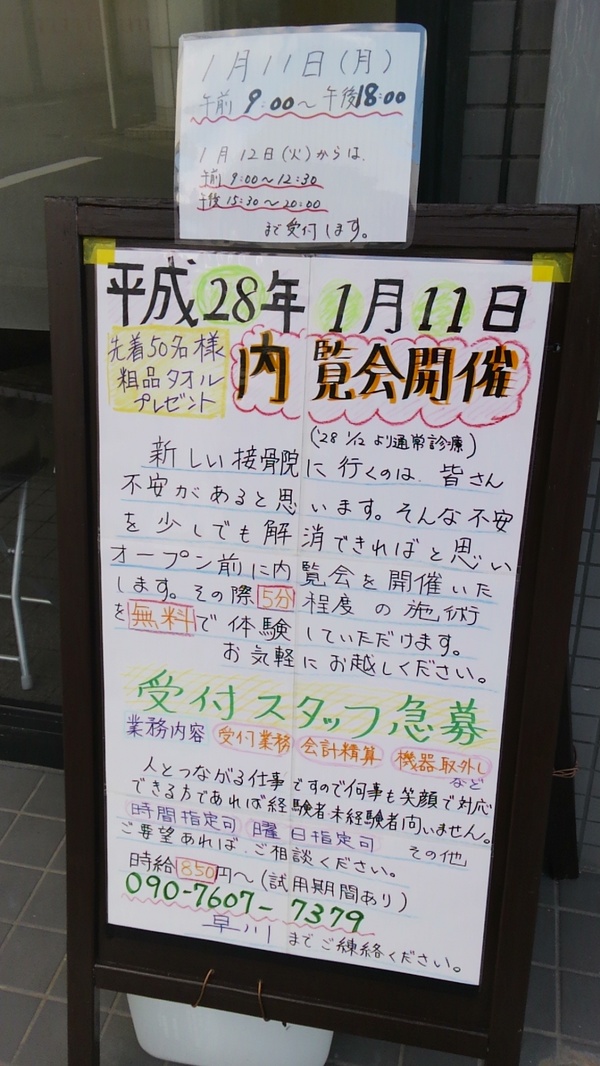 1月11日(月)
午前9:00〜午後18:00
1月12日(火)からは、
午前9:00〜12:30
午後15:30〜20:00
まで受付します。
平成28年1月11日
先着50名様
粗品タオル
プレゼント
内覧会開催
('28 1/12より通常診療)
新しい接骨院に行くのは、皆さん
不安があると思います。そんな不安
を少しでも解消できればと思い
オープン前に内覧会を開催いた
します。その際5分程度の施術
を無料で体験していただけます。
お気軽にお越しください。
受付スタッフ急募
業務内容 受付業務 会計精算 機器取外し
など
人とつながる仕事ですので何事も笑顔で対応
できる方であれば経験者未経験者向いません。
時間指定可 曜日指定可 その他
ご要望あれば、ご相談ください。
時給850円〜(試用期間あり)
090-7607-7379
早川までご練絡ください。